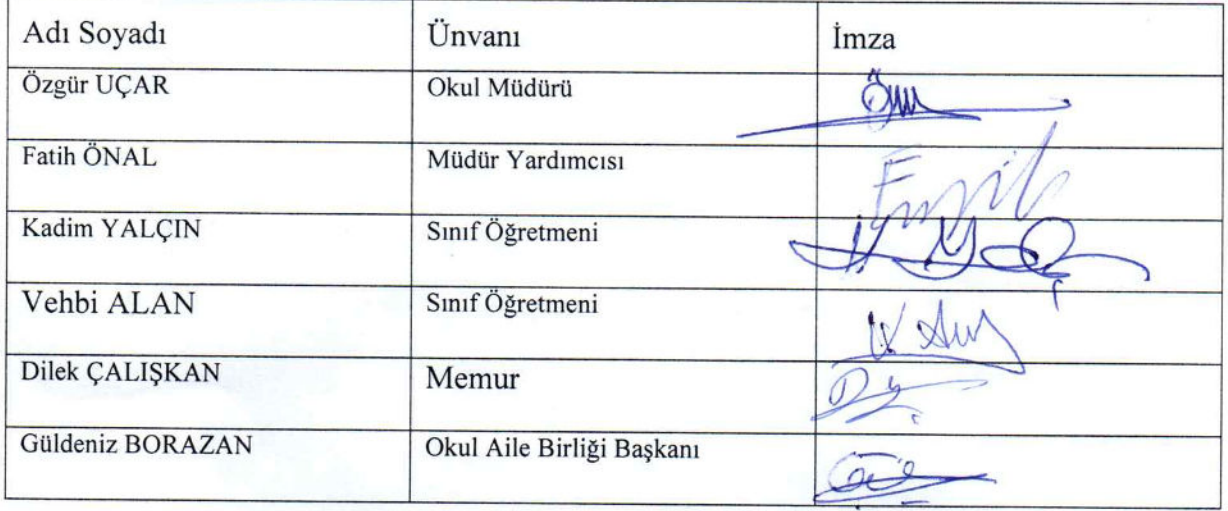 Adı Soyadı Ünvanı İmza
Özgür UÇAR Okul Müdürü
Fatih ÖNAL Müdür Yardımcısı
Kadim YALÇIN Sınıf Öğretmeni
Vehbi ALAN Sınıf Öğretmeni
Dilek ÇALIŞKAN Memur
Güldeniz BORAZAN Okul Aile Birliği Başkanı